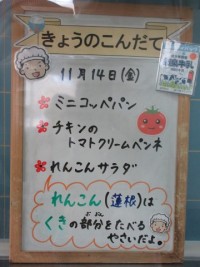 きょうのこんだて
11月14日(金)
ミニコッペパン
チキンの
トマトクリームペンネ
れんこんサラダ
れんこん(蓮根)は
くきの部分をたべる
ぶぶん
やさいだよ。
牛乳